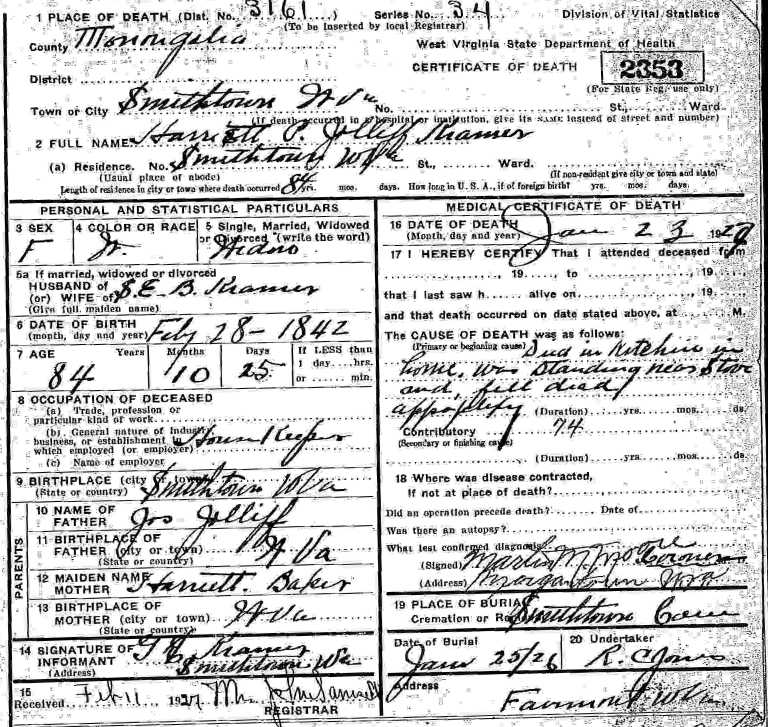 1 PLACE OF DEATH (Dist. No. 3161) Series No. 34 Division of Vital Statistics
(To be inserted by local Registrar)
County Monongelia West Virginia State Department of Health
CERTIFICATE OF DEATH 2353
District
(For State Reg. use only)
Town or City Smithtown W Va No. St., Ward
(If death occurred in a hospital or institution, give its NAME instead of street and number)
2 FULL NAME Harriett P. Jolliff Kramer
(a) Residence. No. Smithtown W Va St., Ward.
(Usual place of abode) (If non-resident give city or town and state)
Length of residence in city or town where death occurred 84 yrs. mos. days. How long in U. S. A., if of foreign birth? yrs. mos. days.
PERSONAL AND STATISTICAL PARTICULARS
3 SEX F
4 COLOR OR RACE
5 Single, Married, Widowed
or Divorced (write the word)
5a If married, widowed or divorced
HUSBAND of
(or) WIFE of S. E. B. Kramer
(Give full maiden name)
6 DATE OF BIRTH
(month, day and year) Feby 28 - 1842
7 AGE Years Months Days If LESS than
1 day....hrs.
84 10 25 or ...... min.
8 OCCUPATION OF DECEASED
(a) Trade, profession or
particular kind of work
(b) General nature of industry,
business, or establishment in
which employed (or employer) House Keeper
(c) Name of employer
9 BIRTHPLACE (city or town)
(State or country) Smithtown W Va
PARENTS
10 NAME OF
FATHER Jos Jolliff
11 BIRTHPLACE OF
FATHER (city or town) W Va
(State or country)
12 MAIDEN NAME
MOTHER Harriett Baker
13 BIRTHPLACE OF
MOTHER (city or town) W Va
(State or country)
14 SIGNATURE OF
INFORMANT Kramer
(Address) Smithtown W Va
15
Received Feb 11 1927 John Samsell
REGISTRAR
MEDICAL CERTIFICATE OF DEATH
16 DATE OF DEATH
(Month, day and year) Jan 23 1927
17 I HEREBY CERTIFY That I attended deceased from
, 19 , to , 19
that I last saw h alive on , 19
and that death occurred on date stated above, at M.
The CAUSE OF DEATH was as follows:
(Primary or beginning cause) Died in Kitchen in
home, was standing near stove
and, fell dead
appoplexy (Duration) yrs. mos. ds.
Contributory 74
(Secondary or finishing cause)
(Duration) yrs. mos. ds.
18 Where was disease contracted,
If not at place of death?
Did an operation precede death? Date of
Was there an autopsy?
What test confirmed diagnosis
(Signed) Moore Coroner
(Address) Morgantown W Va
19 PLACE OF BURIAL
Cremation or Smithtown Cem
Date of Burial 20 Undertaker
Jan 25/26 R. C. Jones
Address
Fairmont W Va